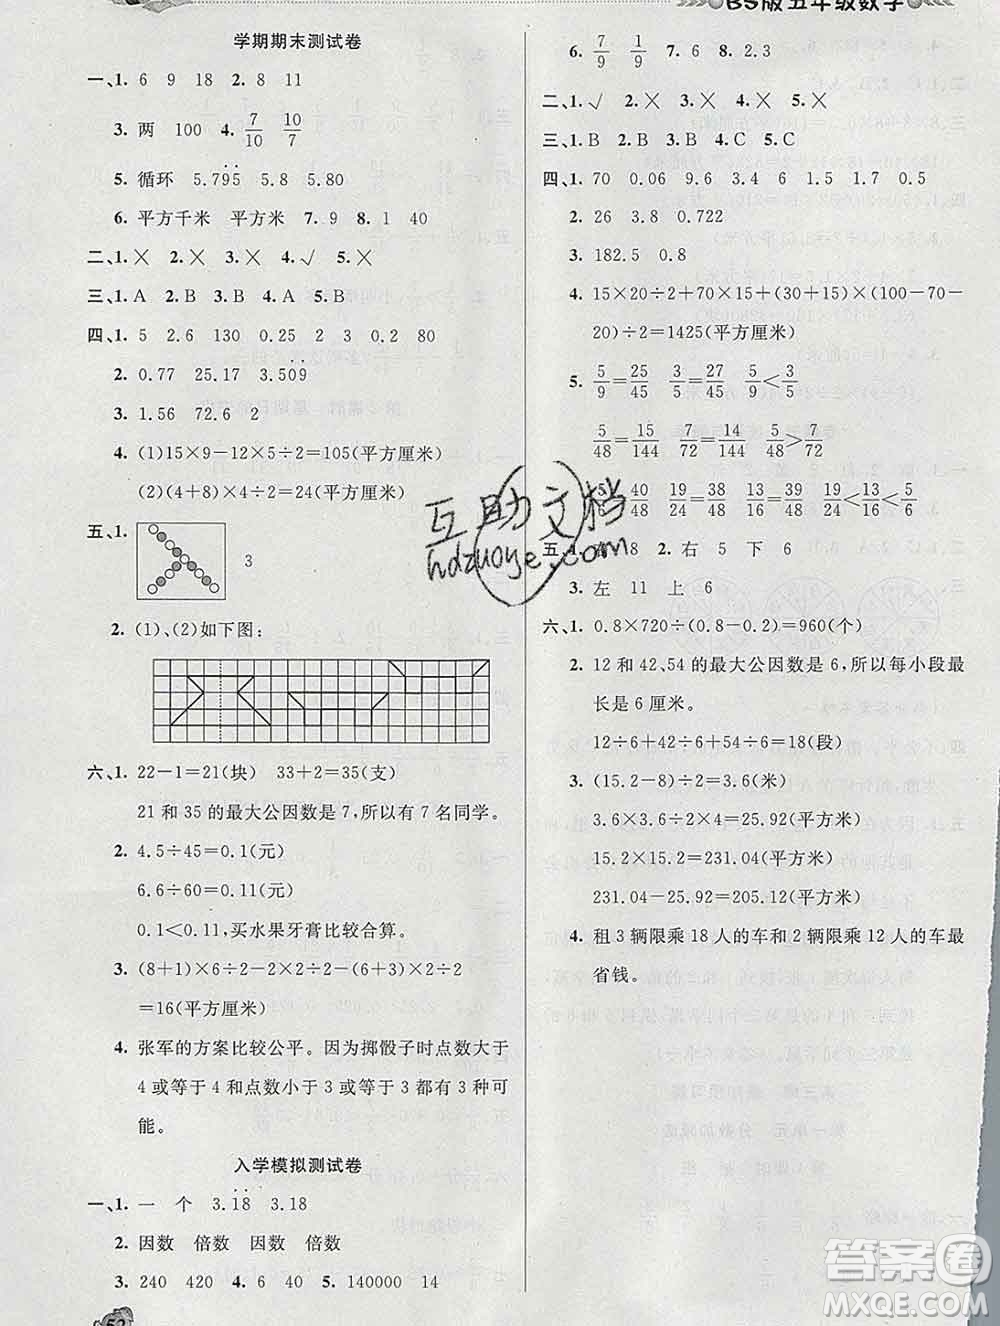 BS版五年级数学
学期期末测试卷
一、1. 6 9 18 2. 8 11
3. 两 100 4. 7/10 10/7
5. 循环 5.79̇5̇ 5.8 5.80
6. 平方千米 平方米 7. 9 8. 1 40
二、1. × 2. × 3. × 4. √ 5. ×
三、1. A 2. B 3. B 4. A 5. B
四、1. 5 2.6 130 0.25 2 3 0.2 80
2. 0.77 25.17 3.5̇09̇
3. 1.56 72.6 2
4. (1)15×9-12×5÷2=105(平方厘米)
(2)(4+8)×4÷2=24(平方厘米)
五、1. 3
2. (1)、(2)如下图:
六、1. 22-1=21(块) 33+2=35(支)
21 和 35 的最大公因数是 7,所以有 7 名同学。
2. 4.5÷45=0.1(元)
6.6÷60=0.11(元)
0.1<0.11,买水果牙膏比较合算。
3. (8+1)×6÷2-2×(6+3)×2÷2
=16(平方厘米)
4. 张军的方案比较公平。因为掷骰子时点数大于
4 或等于 4 和点数小于 3 或等于 3 都有 3 种可
能。
入学模拟测试卷
一、1. 一 个 3.1̇8̇ 3.18
2. 因数 倍数 因数 倍数
3. 240 420 4. 6 40 5. 140000 14
52
6. 7/9 1/9 7. 6 8. 2.3
二、1. √ 2. × 3. × 4. × 5. ×
三、1. B 2. B 3. B 4. C 5. C
四、1. 70 0.06 9.6 3.4 6 1.5 1.7 0.5
2. 26 3.8 0.722
3. 182.5 0.8
4. 15×20÷2+70×15+(30+15)×(100-70-
20)÷2=1425(平方厘米)
5. 5/9=25/45 3/5=27/45 5/9<3/5
5/48=15/144 7/72=14/144 5/48>7/72
5/6=40/48 19/24=38/48 19/24<5/6
五、1. 8 2. 右 5 下 6
3. 左 11 上 6
六、1. 0.8×720÷(0.8-0.2)=960(个)
2. 12 和 42、54 的最大公因数是 6,所以每小段最
长是 6 厘米。
12÷6+42÷6+54÷6=18(段)
3. (15.2-8)÷2=3.6(米)
3.6×3.6÷2×4=25.92(平方米)
15.2×15.2=231.04(平方米)
231.04-25.92=205.12(平方米)
4. 租 3 辆限乘 18 人的车和 2 辆限乘 12 人的车最
省钱。
互助文档
hdzuoye.com
答案圈
MXQE.COM